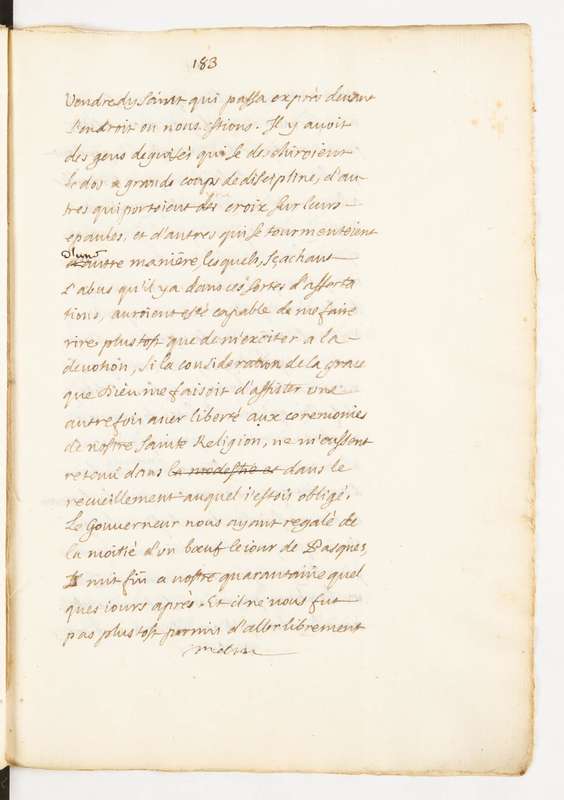 183
Vendredy saint qui passa exprès devant
l'endroit ou nous estions. Il y avoit
des gens deguisés qui se deschiroient
le dos a grands coups de discipline, d'au-
tres qui portoient des croix sur leurs
epaules, et d'autres qui se tourmentoient
d'une
et autre manière lesquels, sçachant
l'abus qu'il y a dans ces sortes d'affecta
tions, auroient esté capable de me faire
rire plustost que de m'exciter a la
devotion, si la consideration de la grace
que Dieu me faisoit d'assister une
autre fois avec liberté aux ceremonies
de nostre sainte Religion, ne m'eussent
retenu dans la modestie et dans le
recueillement auquel i'estois obligé.
Le Gouverneur nous ayant regalé de
la moitié d'un bœuf le iour de Pasques,
mit fin a nostre quarantaine quel
ques iours après. Et il ne nous fut
pas plustost permis d'aller librement